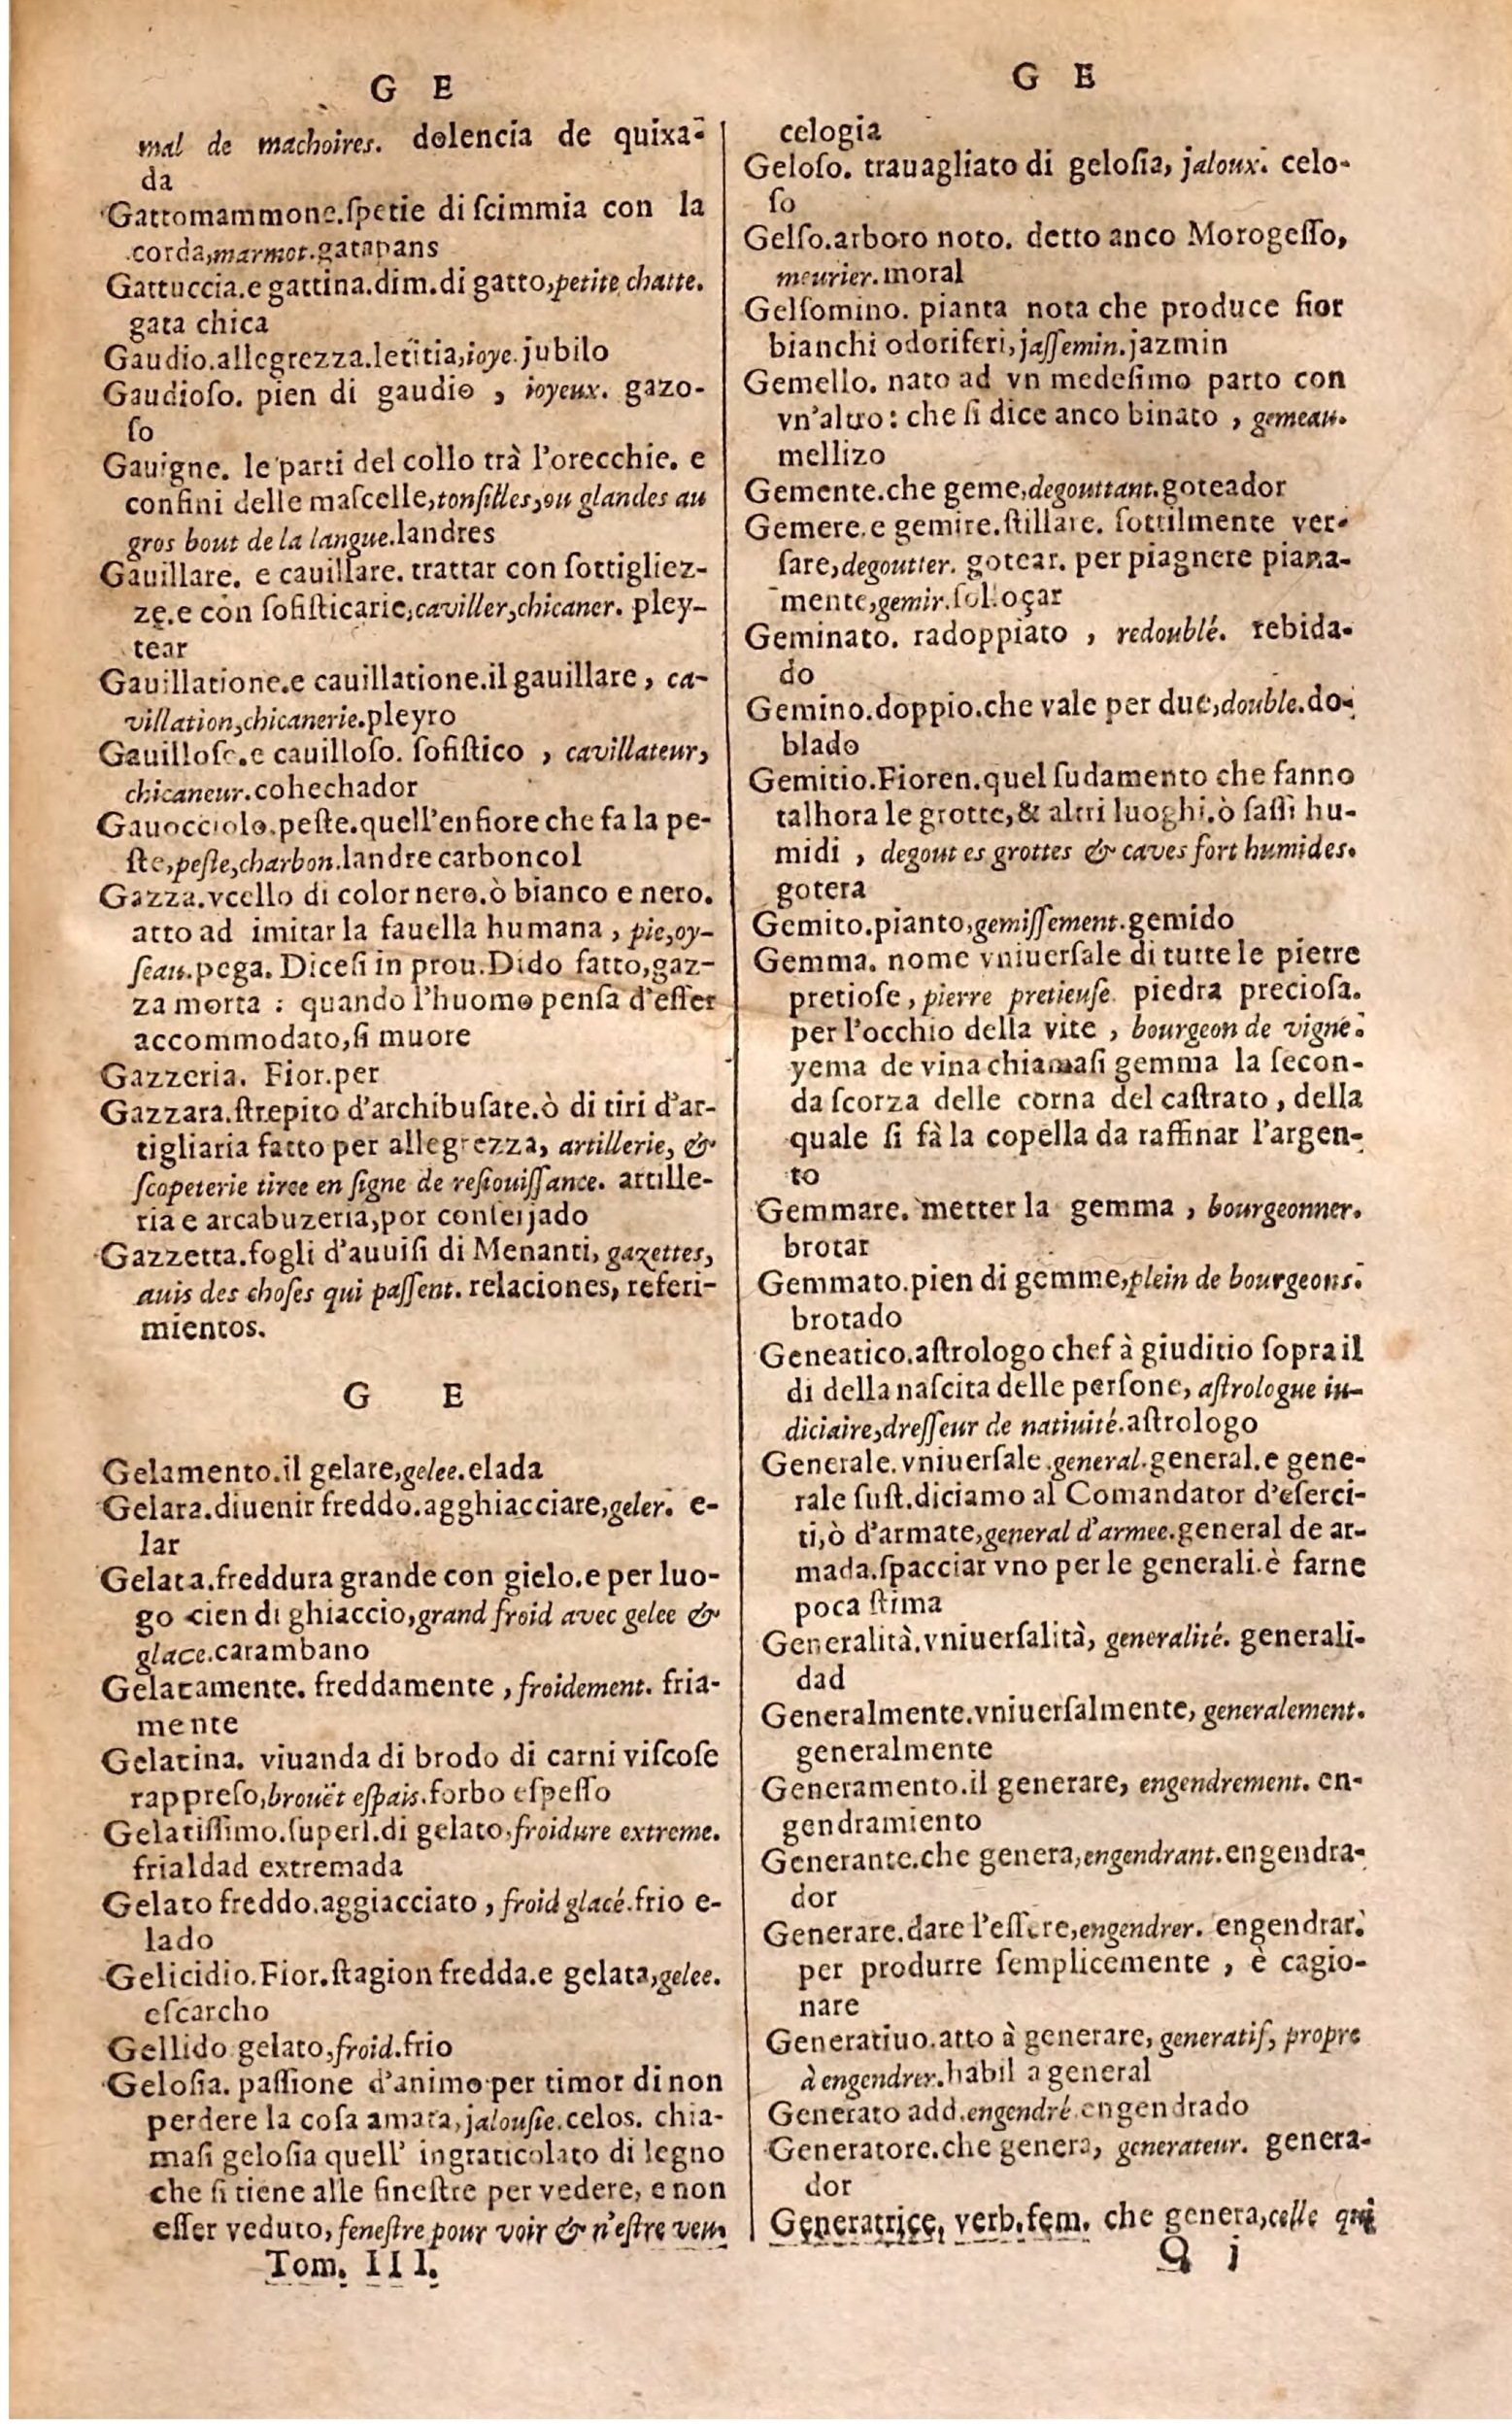 G E
mal de machoires. dolencia de quixa-
da
Gattomammone.ſpetie di ſcimmia con la
corda,marmot.gatapans
Gattuccia.e gattina.dim.di gatto,petite chatte.
gata chica
Gaudio.allegrezza.letitia,ioye.jubilo
Gaudioſo. pien di gaudio , ioyeux. gazo-
ſo
Gauigne. le parti del collo trà l'orecchie. e
confini delle maſcelle,tonſilles,ou glandes au
gros bout de la langue.landres
Gauillare. e cauillare. trattar con ſottigliez-
ze.e con ſofiſticarie,caviller,chicaner. pley-
tear
Gauillatione.e cauillatione.il gauillare , ca-
villation,chicanerie.pleyro
Gauilloſo.e cauilloſo. ſofiſtico , cavillateur,
chicaneur.cohechador
Gauocciolo.peſte.quell'enfiore che fa la pe-
ſte,peſte,charbon.landre carboncol
Gazza.vcello di color nero.ò bianco e nero.
atto ad imitar la fauella humana , pie,oy-
ſeau.pega. Diceſi in prou.Dido fatto,gaz-
za morta : quando l'huomo penſa d'eſſer
accommodato,ſi muore
Gazzeria. Fior.per
Gazzara.ſtrepito d'archibuſate.ò di tiri d'ar-
tigliaria fatto per allegrezza, artillerie, &
ſcopeterie tiree en ſigne de reſiouiſſance. artille-
ria e arcabuzeria,por conſeijado
Gazzetta.fogli d'auuiſi di Menanti, gazettes,
auis des choſes qui paſſent. relaciones, referi-
mientos.
G E
Gelamento.il gelare,gelee.elada
Gelara.diuenir freddo.agghiacciare,geler. e-
lar
Gelata.freddura grande con gielo.e per luo-
go cien di ghiaccio,grand froid avec gelee &
glace.carambano
Gelatamente. freddamente , froidement. fria-
mente
Gelatina. viuanda di brodo di carni viſcoſe
rappreſo,brouët eſpais.forbo eſpeſſo
Gelatiſſimo.ſuperl.di gelato,froidure extreme.
frialdad extremada
Gelato freddo.aggiacciato , froid glacé.frio e-
lado
Gelicidio.Fior.ſtagion fredda.e gelata,gelee.
eſcarcho
Gellido gelato,froid.frio
Geloſia. paſſione d'animo per timor di non
perdere la coſa amata,jalouſie.celos. chia-
maſi geloſia quell' ingraticolato di legno
che ſi tiene alle fineſtre per vedere, e non
eſſer veduto, feneſtre pour voir & n'eſtre veu.
Tom. III.
G E
celogia
Geloſo. trauagliato di geloſia, jaloux. celo-
ſo
Gelſo.arboro noto. detto anco Morogeſſo,
meurier.moral
Gelſomino. pianta nota che produce fior
bianchi odoriferi,jaſſemin.jazmin
Gemello. nato ad vn medeſimo parto con
vn'altro: che ſi dice anco binato , gemeau.
mellizo
Gemente.che geme,degouttant.goteador
Gemere.e gemire.ſtillare. ſottilmente ver-
ſare,degoutter. gotear. per piagnere piana-
mente,gemir.ſolloçar
Geminato. radoppiato , redoublé. rebida-
do
Gemino.doppio.che vale per due,double.do-
blado
Gemitio.Fioren.quel ſudamento che fanno
talhora le grotte,& altri luoghi.ò ſaſſi hu-
midi , degout es grottes & caves fort humides.
gotera
Gemito.pianto,gemiſſement.gemido
Gemma. nome vniuerſale di tutte le pietre
pretioſe , pierre pretieuſe. piedra precioſa.
per l'occhio della vite , bourgeon de vigne.
yema de vina chiamaſi gemma la ſecon-
da ſcorza delle corna del caſtrato , della
quale ſi fà la copella da raffinar l'argen-
to
Gemmare. metter la gemma , bourgeonner.
brotar
Gemmato.pien di gemme,plein de bourgeons.
brotado
Geneatico.aſtrologo chef à giuditio ſopra il
di della naſcita delle perſone, aſtrologue iu-
diciaire,dreſſeur de natiuité.aſtrologo
Generale.vniuerſale.general.general.e gene-
rale ſuſt.diciamo al Comandator d'eſerci-
ti,ò d'armate,general d'armee.general de ar-
mada.ſpacciar vno per le generali.è farne
poca ſtima
Generalità.vniuerſalità, generalité. generali-
dad
Generalmente.vniuerſalmente, generalement.
generalmente
Generamento.il generare, engendrement. en-
gendramiento
Generante.che genera,engendrant.engendra-
dor
Generare.dare l'eſſere,engendrer. engendrar.
per produrre ſemplicemente , è cagio-
nare
Generatiuo.atto à generare, generatif, propre
à engendrer.habil a general
Generato add.engendré.engendrado
Generatore.che genera, generateur. genera-
dor
Generatrice, verb.fem. che genera,celle qui
Q i